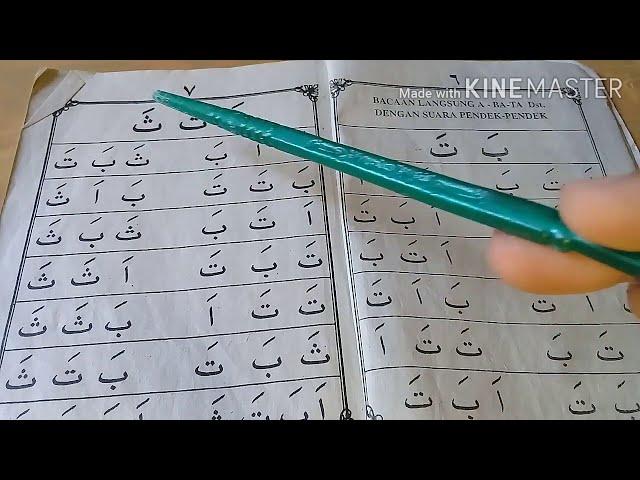 Made with KINEMASTER
٦
BACAAN LANGSUNG A - BA-TA Dst.
DENGAN SUARA PENDEK-PENDEK
بَ تَ
تَ بَ
اَ بَ تَ
اَ تَ بَ
اَ تَ بَ اَ تَ
تَ بَ تَ تَ اَ
بَ تَ اَ بَ تَ
٧
تَ ثَ
اَ بَ ثَ بَ تَ
بَ تَ تَ بَ اَ ثَ
اَ تَ بَ ثَ بَ ثَ
تَ بَ تَ اَ ثَ ثَ
تَ تَ اَ بَ ثَ ثَ
ثَ بَ تَ بَ تَ ثَ
اَ بَ تَ ثَ